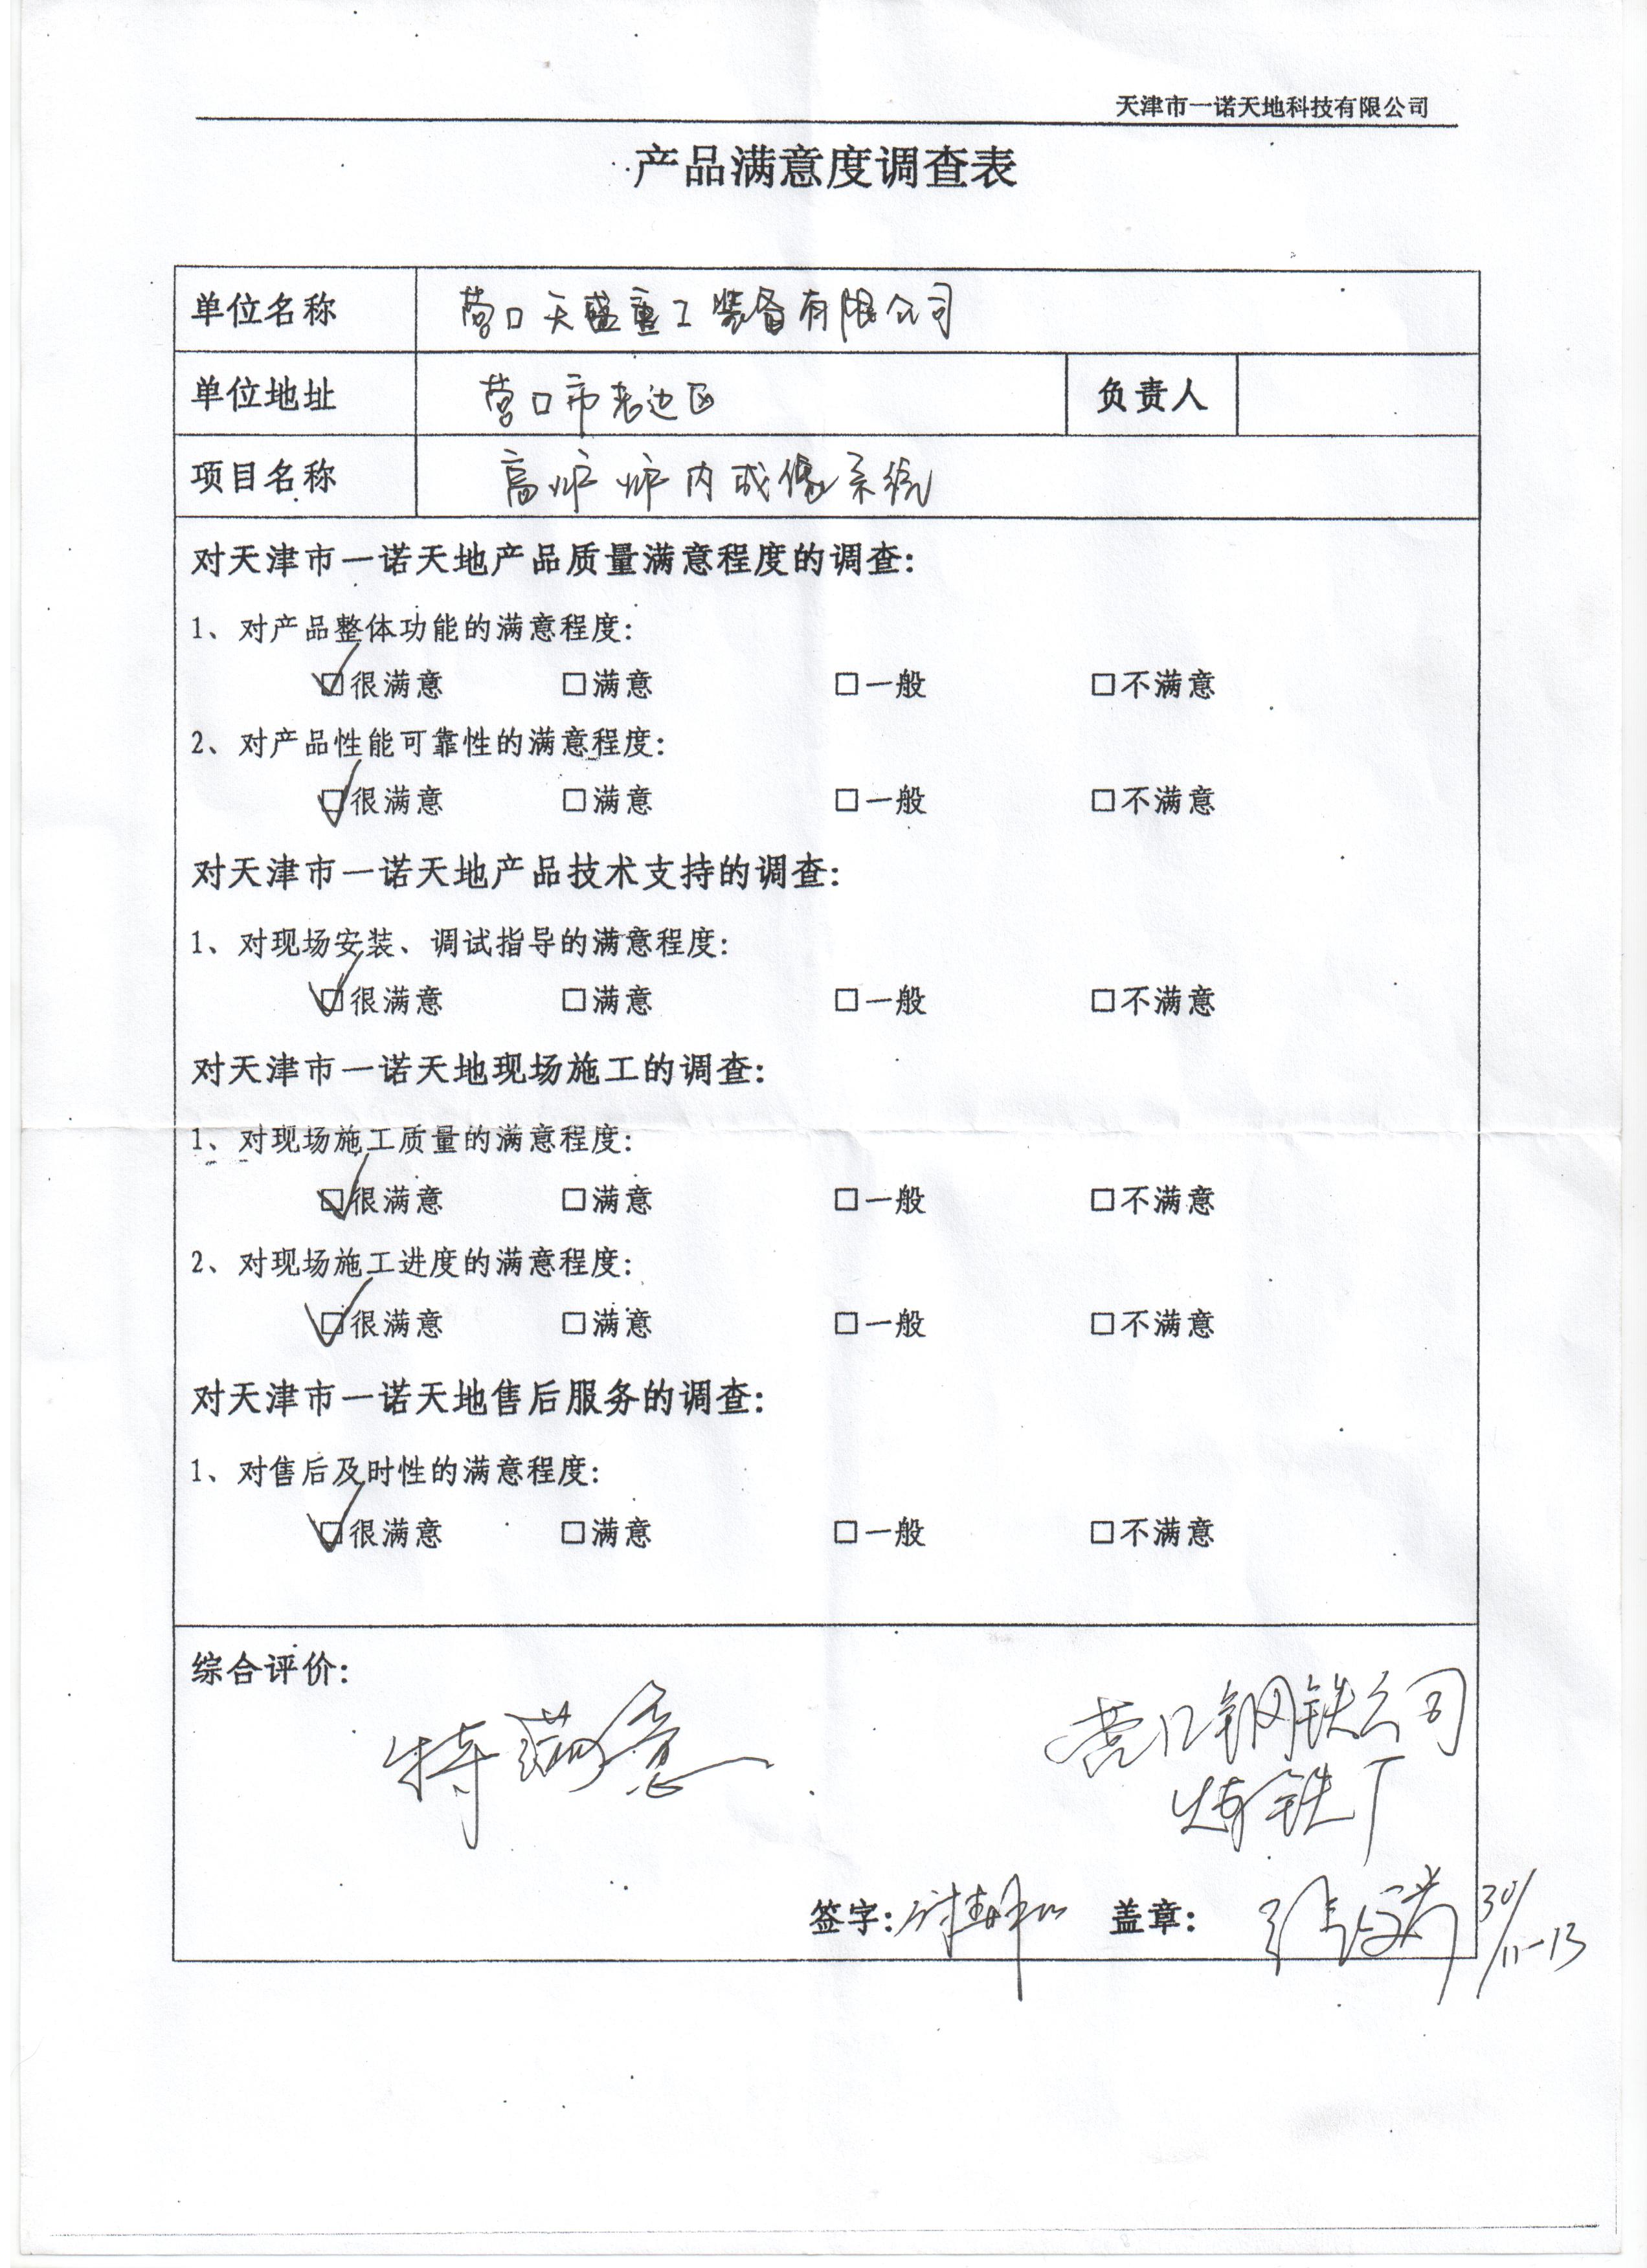 天津市一诺天地科技有限公司
产品满意度调查表
单位名称 营口天盛重工装备有限公司
单位地址 营口市老边区 负责人
项目名称 高炉炉内成像系统
对天津市一诺天地产品质量满意程度的调查:
1、对产品整体功能的满意程度:
☑很满意 □满意 □一般 □不满意
2、对产品性能可靠性的满意程度:
☑很满意 □满意 □一般 □不满意
对天津市一诺天地产品技术支持的调查:
1、对现场安装、调试指导的满意程度:
☑很满意 □满意 □一般 □不满意
对天津市一诺天地现场施工的调查:
1、对现场施工质量的满意程度:
☑很满意 □满意 □一般 □不满意
2、对现场施工进度的满意程度:
☑很满意 □满意 □一般 □不满意
对天津市一诺天地售后服务的调查:
1、对售后及时性的满意程度:
☑很满意 □满意 □一般 □不满意
综合评价:
特满意
营口钢铁公司
炼铁厂
签字: 盖章: 30/11-13